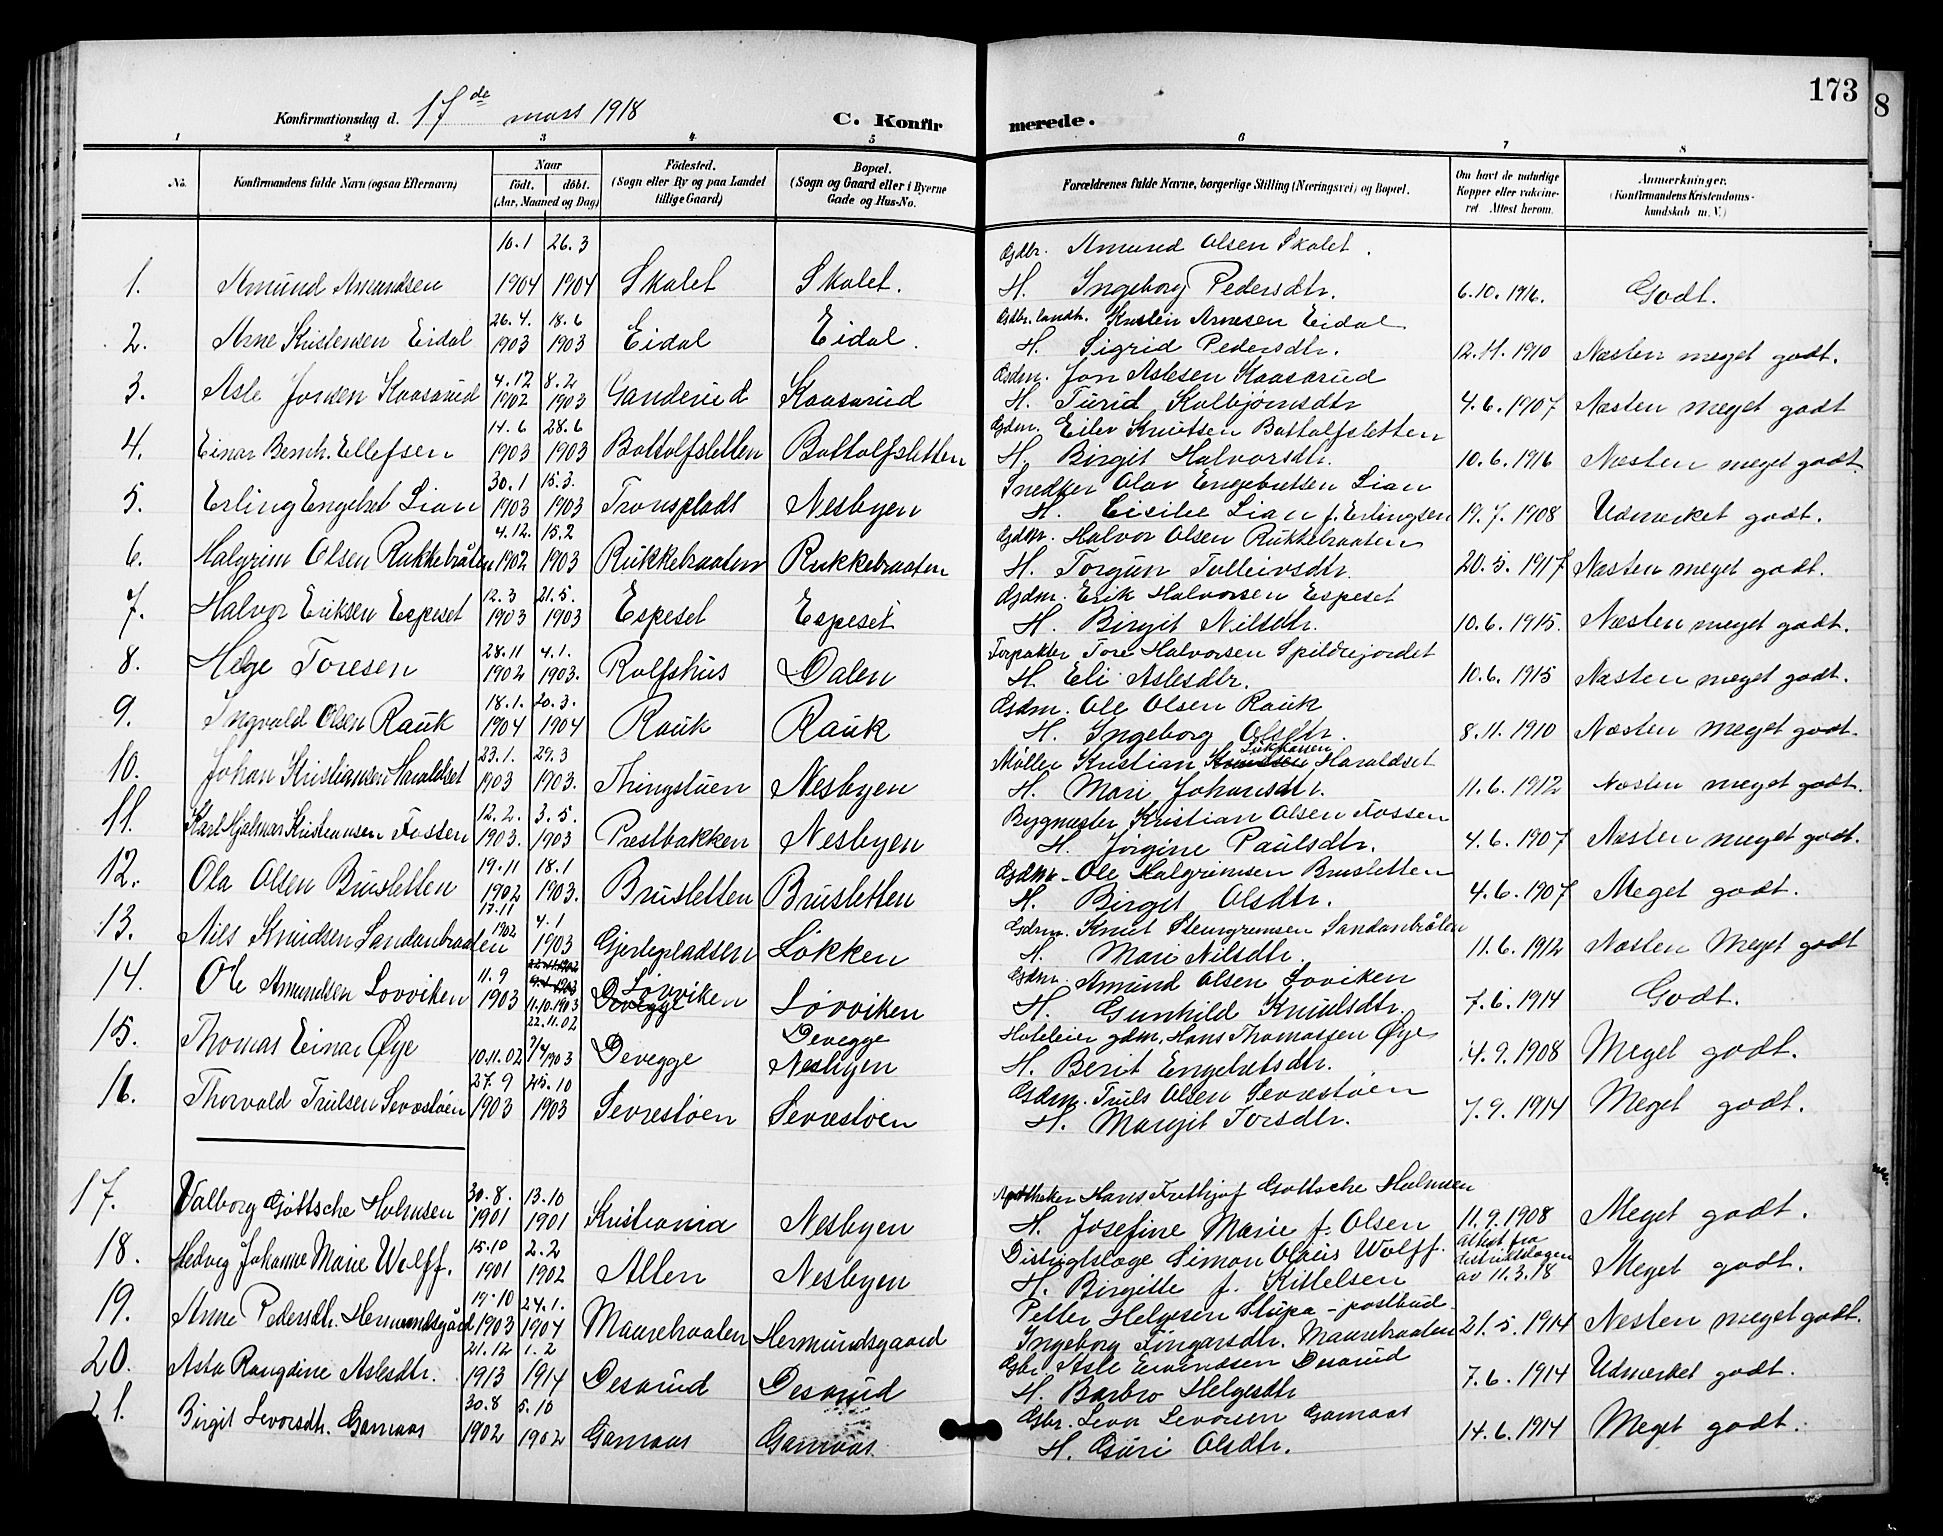 173
8
Konfirmationsdag d. 17de mars 1918
C. Konfir merede.
1 2 3 4 5 6 7 8
No. Konfirmandens fulde Navn (ogsaa Efternavn) Naar födt. döbt. (Aar, Maaned og Dag) Födested. (Sogn eller By og paa Landet tillige Gaard) Bopæl. (Sogn og Gaard eller i Byerne Gade og Hus-No. Forældrenes fulde Navne, borgerlige Stilling (Næringsvei) og Bopæl. Om havt de naturlige Kopper eller vaccineret Attest herom. Anmærkninger. (Konfirmandens Kristendomskundskab m. V.)
10.1 26.3 Gdbr. Amund Olsen Skolet.
1. Amund Amundsen 1904 1904 Skolet Skolet. H. Ingeborg Pedersdtr. 6.10.1916. Godt.
26.4. 18.6 Gdbr. landh. Kristen Arnesen Eidal
2. Arne Kristensen Eidal 1903 1903 Eidal Eidal. H. Sigrid Pedersdtr. 12.11.1910 Næsten meget godt.
4.12 8.2 Gsdm. Jon Aslesen Kaasarud
3. Asle Jonsen Kaasarud 1902 1903 Ganderud Kaasarud H. Turid Kolbjørnsdtr 4.6.1907 Næsten meget godt
14.6 28.6 Gdm. Eilev Knutsen Bottolfsletten
4. Einar Bernh. Ellefsen 1903 1903 Bottolfsletten Bottolfsletten H. Birgit Halvorsdtr. 10.6.1916 Næsten meget godt.
30.1 15.3. Snedker Olav Engebretsen Lian
5. Erling Engebret Lian 1903 1903 Tronspladt Nesbyen H. Cicilie Lian f. Erlingsen 19.7.1908 Udmerket godt.
4.12. 15.2 Gsdm. Halvor Olsen Rukkebraaten
6. Halgrim Olsen Rukkebråten 1902 1903 Rukkebraaten Rukkebraaten H. Torgun Tolleivsdtr. 20.5.1917 Næsten meget godt.
12.3 21.5. Gsdm. Erik Halvorsen Espeset
7. Halvor Eriksen Espeset 1903 1903 Espeset Espeset H. Birgit Nilsdtr. 10.6.1915. Næsten meget godt.
28.11 4.1. Forpakter Tore Halvorsen Spildrejordet
8. Helge Toresen 1902 1903. Rolfshus Dalen H. Eli Aslesdtr. 10.6.1915 Næsten meget godt.
18.1. 20.3. Gsdm. Ole Olsen Rauk
9. Ingvald Olsen Rauk 1904 1904 Rauk Rauk H. Ingeborg Olsdtr. 8.11.1910 Næsten meget godt.
23.1. 29.3 Møller Kristian Haraldset
10. Johan Kristiansen Haraldset 1903 1903. Thingstuen Nesbyen H. Mari Johansdtr. 11.6.1912 Næsten meget godt.
12.2. 3.5. Bygmester Kristian Olsen Fossen
11. Karl Hjalmar Kristiansen Fossen 1903. 1903 Prestbakken Nesbyen H. Jørgine Paulsdtr. 4.6.1907 Næsten meget godt.
19.11 18.1 Gsdm. Ole Halgrimsen Brusletten
12. Ola Olsen Brusletten 1902 1903. Brusletten Brusletten H. Birgit Olsdtr. 4.6.1907 Meget godt.
17.11 4.1 Gsdm. Knut Steingrimsen Sandanbråten
13. Nils Knudsen Sandanbraaten 1902 1903 Gjerlepladsen Løkken H. Mari Nilsdtr. 11.6.1912 Næsten Meget godt
11.9 22.11.1902 Gsdm. Amund Olsen Lovviken
14. Ole Amundsen Lovviken 1903 11.10.1903 Devegge Løvviken Løvviken H. Gunhild Knutsdtr. 7.6.1914 Godt.
22.11.02 Devegge Hoteleier gdm. Hans Thomassen Øye
15. Thomas Einar Øye 10.11.02 9/4 1903 Devegge Nesbyen H. Berit Engebretsdtr. 4.9.1908 Meget godt.
27.9 25.10 Gsdm. Truls Olsen Sevrestøen
16. Thorvald Trulsen Sevrestøen 1903 1903 Sevrestøen Sevrestøen H. Margit Torsdtr. 7.9.1914 Meget godt.
30.8. 13.10 Apotheker Hans Frithjof Gøttsche Holmsen
17. Valborg Gøttsche Holmsen 1901 1901 Kristiania Nesbyen H. Josefine Marie f. Olsen 11.9.1908 Meget godt.
15.10 2.2 Distrigtslæge Simon Olaus Wolff.
18. Hedvig Johanne Marie Wolff. 1901 1902 Alten Nesbyen H. Birgitte f. Kittelsen attest fra distriktslægen av 11.3.18 Meget godt.
19.10 24.1. Petter Helgesen Stupa - postbud
19. Anne Pedersdtr. Hermundsgård 1903 1904 Maurebraaten Hermundsgaard Ingeborg Fingarsdtr. Maurebraaten 21.5.1914 Nesten meget godt.
21.12 1.2 Gbr Asle Eivindsen Desarud
20. Asta Rangdine Aslesdtr. 1913 1914 Desarud Desarud H. Barbro Helgesdtr 7.6.1914 Udmerket godt.
30.8 5.10 Gbr. Levor Levorsen Gamaas
21. Birgit Levorsdtr. Gamaas 1902 1902 Gamaas Gamaas. H. Guri Olsdtr. 14.6.1914 Meget godt.